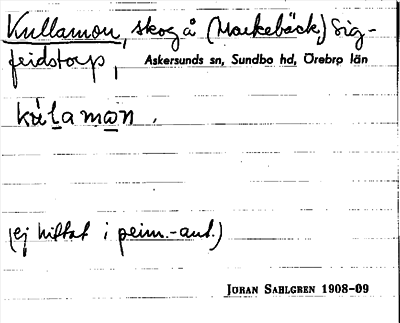 Kullamon, skog å (Markebäck,) Sig-
fridstorp,
Askersunds sn, Sundbo hd, Örebro län
kúlamon.
(ej hittat i prim.-ant.)
JÖRAN SAHLGREN 1908-09